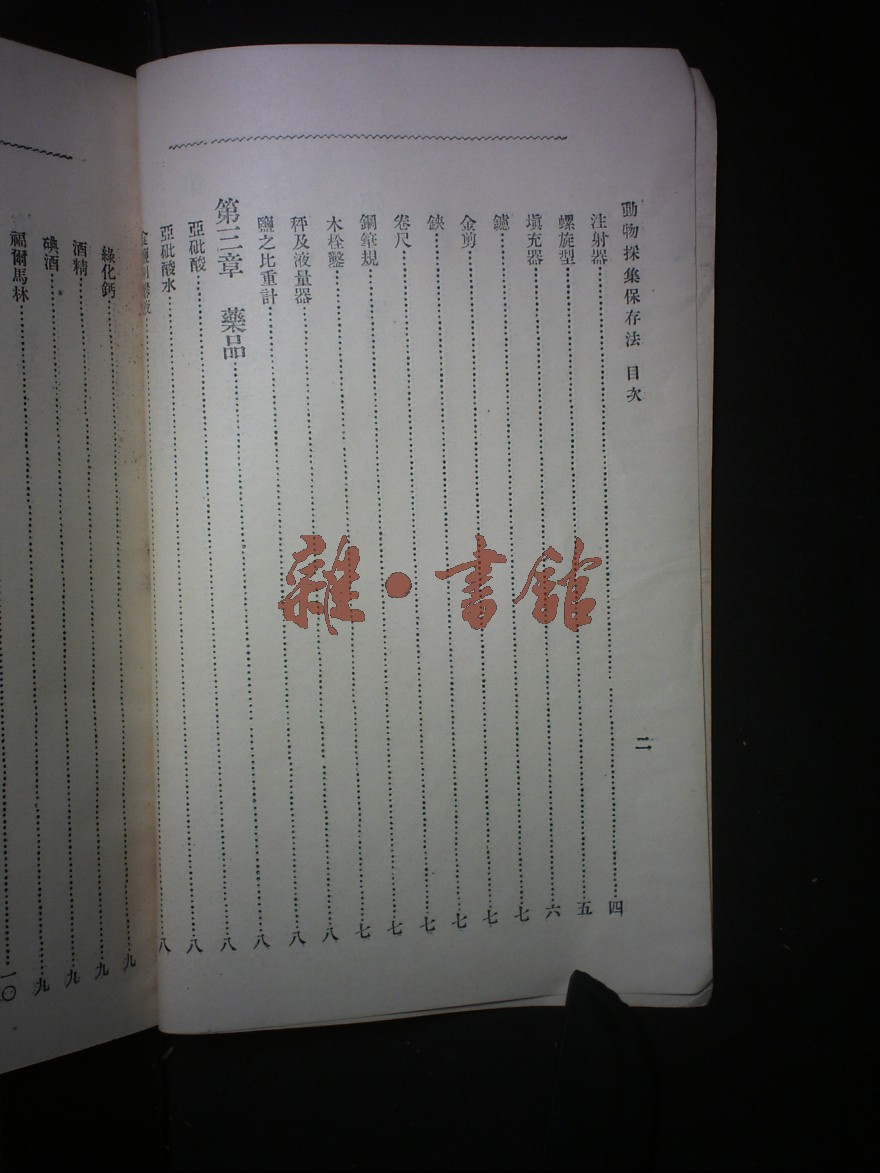 動物採集保存法 目次 二
注射器 四
螺旋型 五
填充器 六
鑢 七
金剪 七
鋏 七
卷尺 七
鋼錐規 七
木栓鑿 八
秤及液量器 八
鹽之比重計 八
第三章 藥品 八
亞砒酸 八
亞砒酸水 八
九
綠化鈣 九
酒精 九
碘酒 九
福爾馬林 一〇
雜·書館